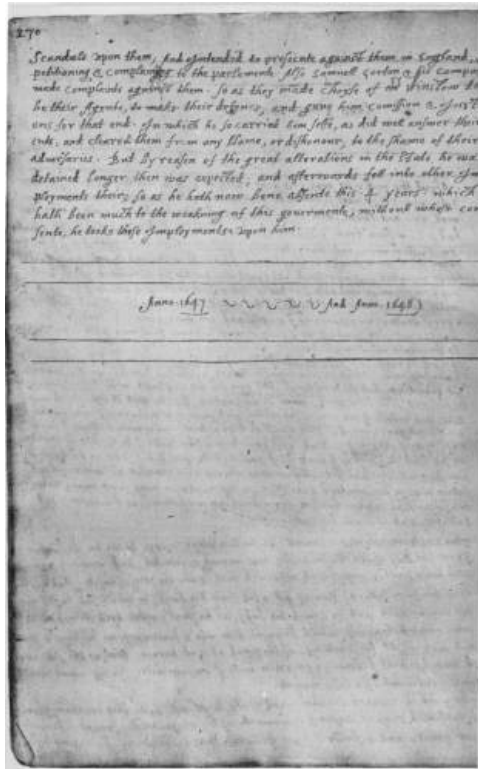 270
scandals upon them, and intended to prosecute against them in England, by
petitioning & complaining to the parlemente. Also Samuell Gorton & his company
made complaints against them. so as they made choyse of mr Winslow to
be their Agente, to make their defence, and gave him comission &
ons for that end. In which he so carried him selfe, as did well answer their
ends, and cleared them from any blame, or dishonour, to the shame of their
adversaries. But by reason of the great alterations in the State, he was
detained longer then was expected; and afterwards fell into other Im
ployments their, so as he hath now bene absente this 4 years. which
hath been much to the weakning of this govermente, without whose con
sente, he tooke these Imployments upon him.
Anno 1647. And Anno 1648.